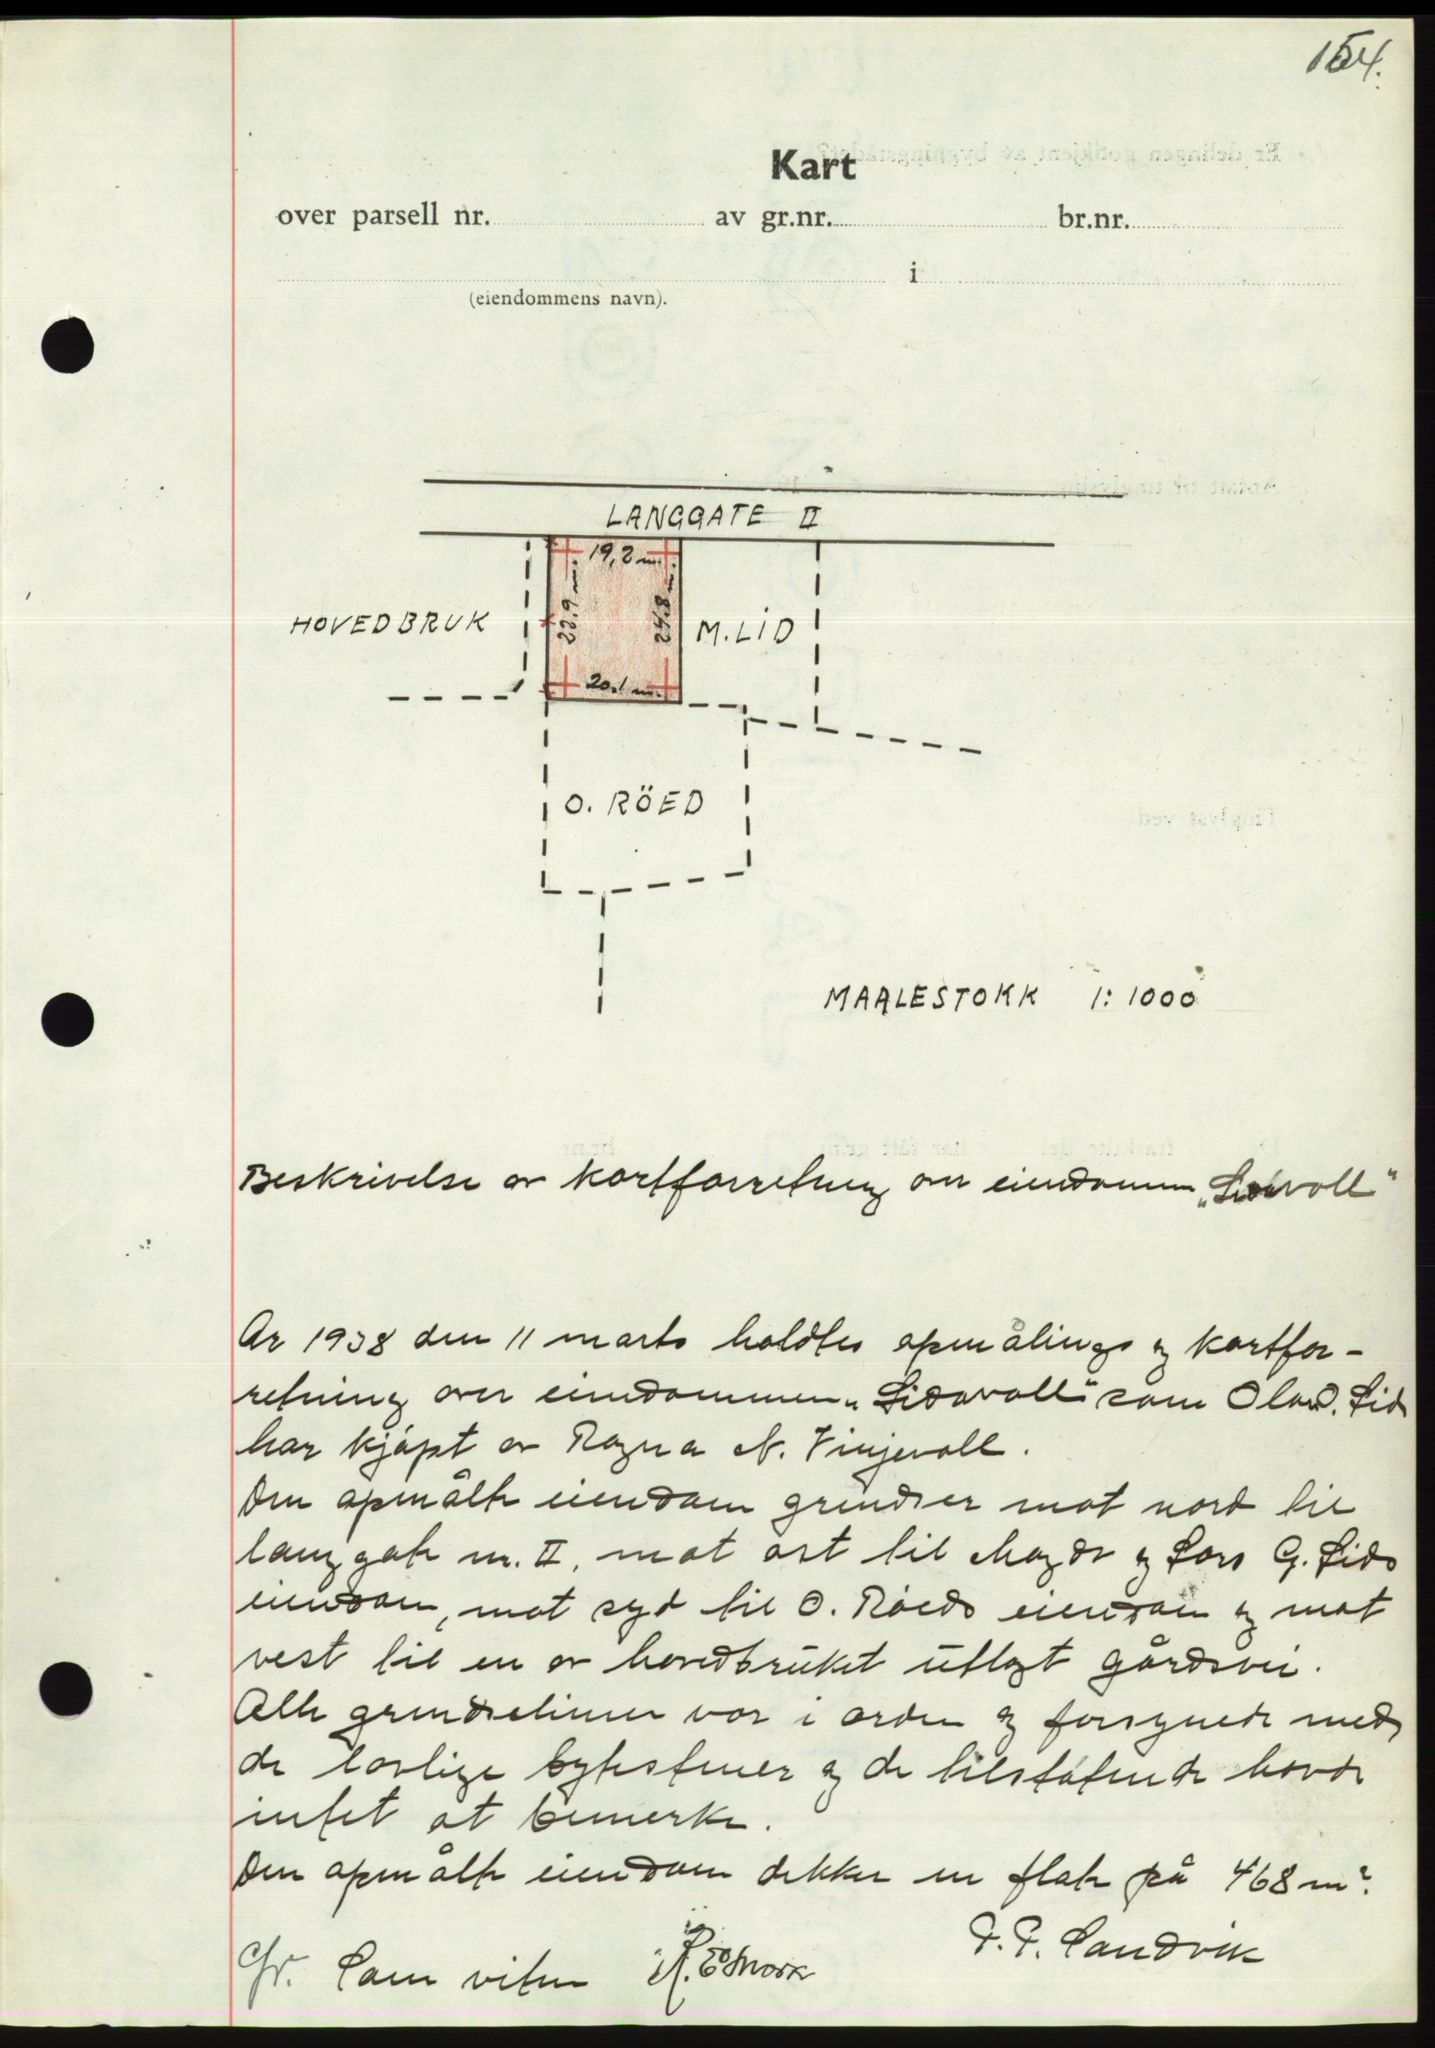 154.
Kart
over parsell nr. av gr.nr. br.nr.
i
(eiendommens navn).
LANGGATE II
19,2 m.
HOVEDBRUK
22.9 m.
24.8 m.
M. LID
20.1 m.
O. RÖED
MAALESTOKK 1:1000
Beskrivelse av kartforretning over eiendommen „Lidavoll"
År 1938 den 11 marts holdtes opmålings og kartfor-
retning over eiendommen „Lidavoll" som Ola D. Lid
har kjøpt av Ragna N. Vinjevoll.
Den opmålte eiendom grendser mot nord til
langgate nr. II, mot øst til Magda og Lars G. Lids
eiendom, mot syd til O. Röeds eiendom og mot
vest til en av hovedbruket utlagt gårdsvei.
Alle grendselinier var i orden og forsynede med
de lovlige bytestener og de tilstøtende havde
intet at bemerke.
Den opmålte eiendom dekker en flate på 468 m².
P. P. Sandvik
Som vitne